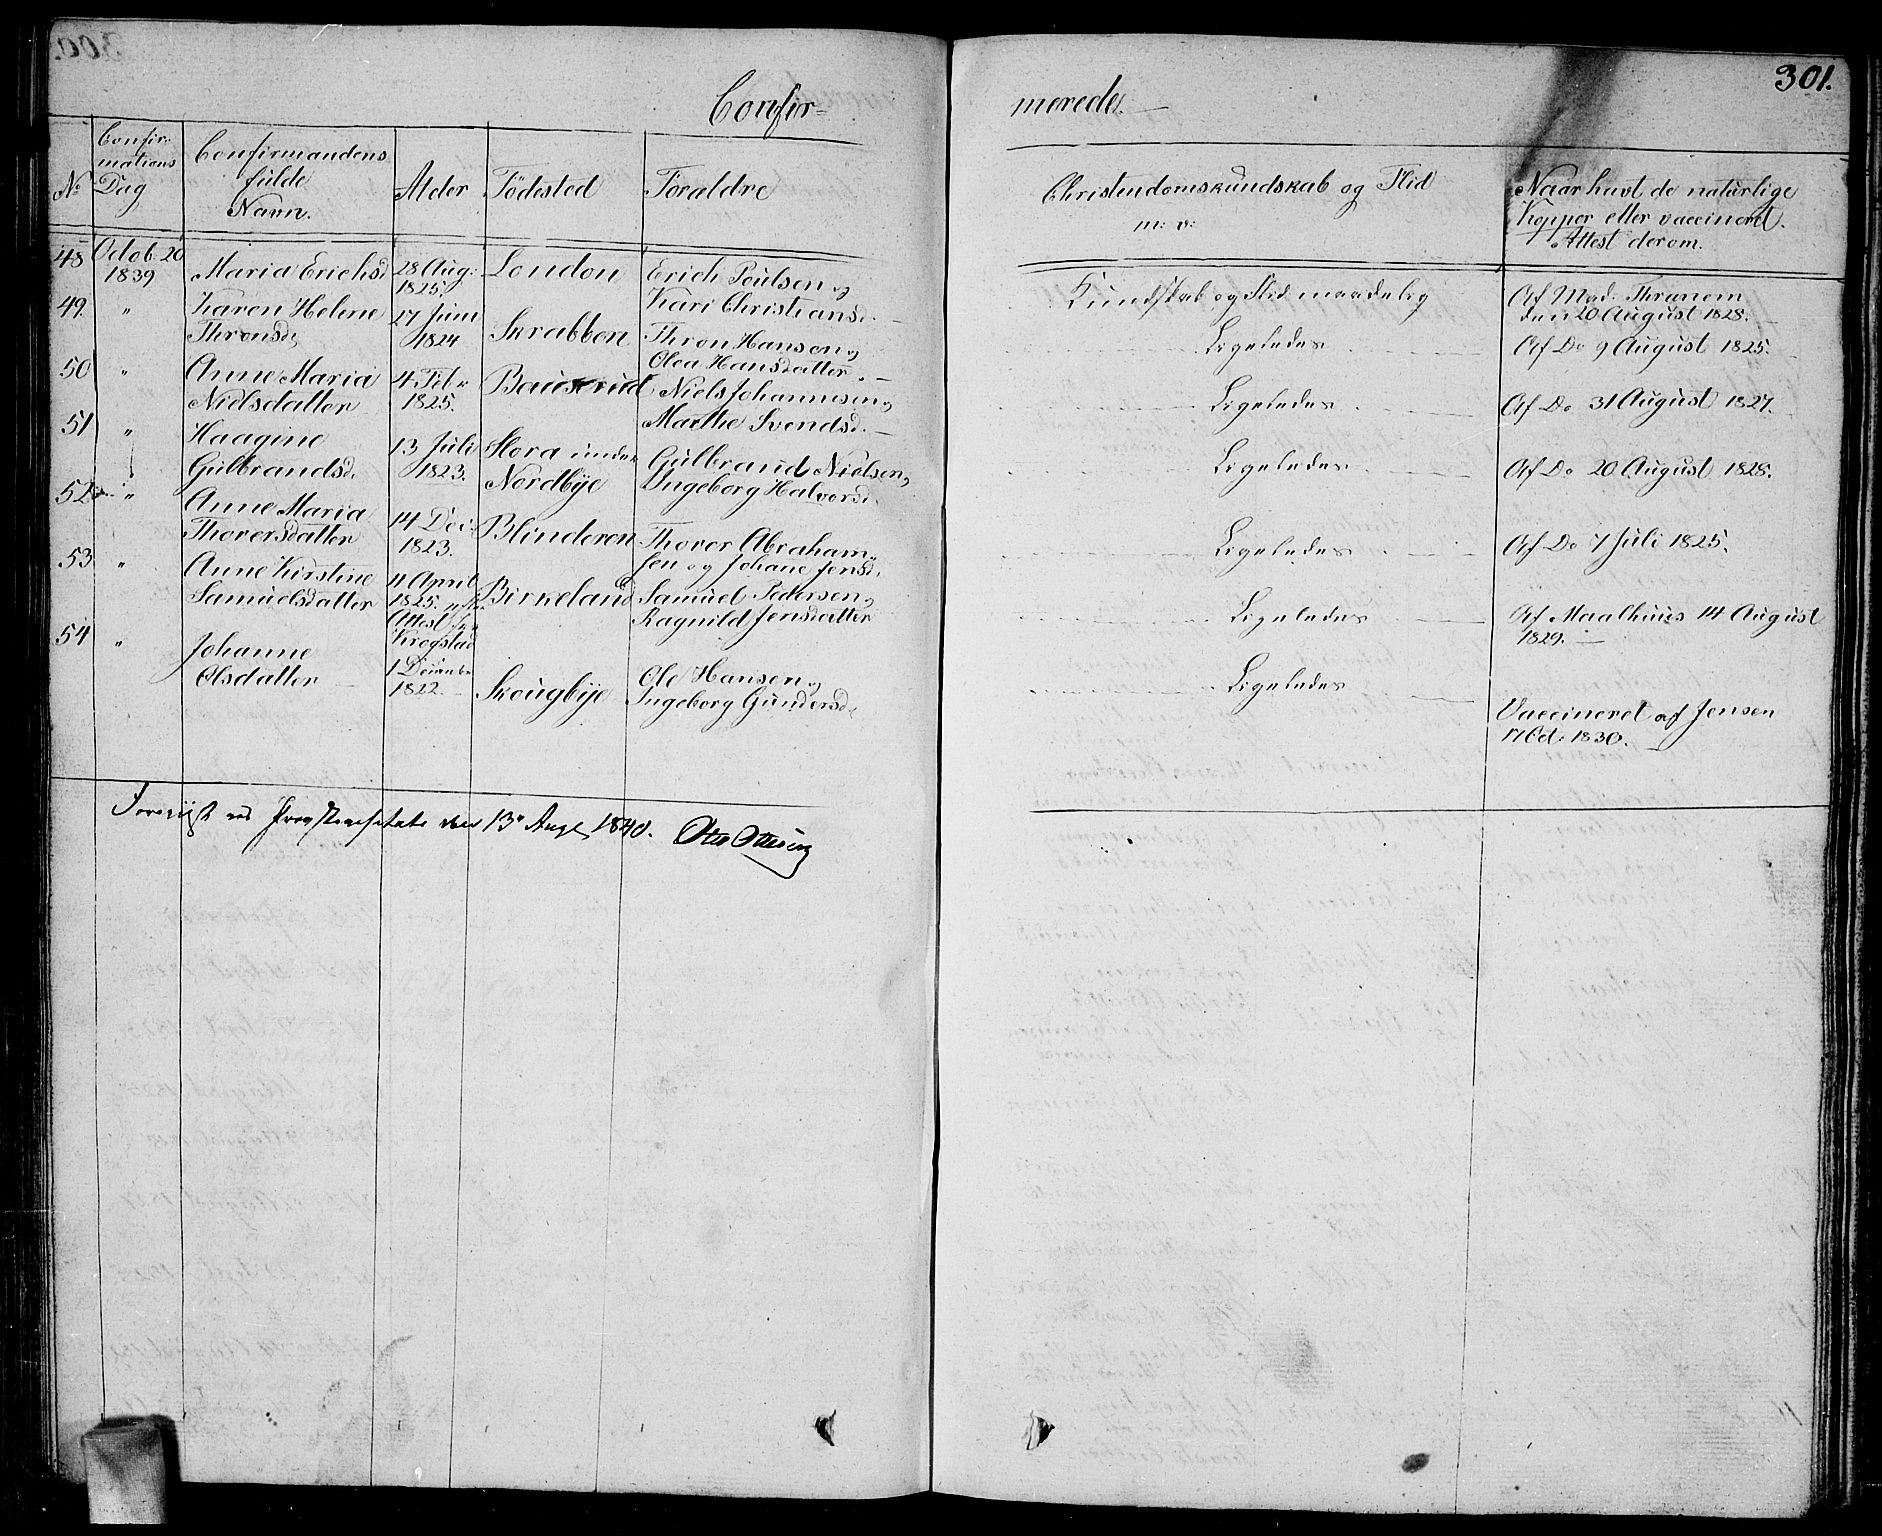 301.
Confir=
merede.
No
Confir=
mations
Dag
Confirmandens
fulde
Navn.
Alder
Födested
Foraldre
Christendomskundskab og Flid
m: v:
Naar havt de naturlige
Kopper eller vaccineret.
Attest derom.
48 Octob. 20 1839 Maria Erichsd 28 Aug: 1825. London Erich Poulsen og
Kari Christiansd. Kundskab og Flid maadelig Af Mad. Thranem
den 20 August 1828.
49. " Karen Helene
Thronsd. 17 Juni
1824 Skrabben Thron Hansen og
Olea Hansdatter. Ligeledes Af Do 9 August 1825.
50 " Anne Maria
Nielsdatter 4 Feb.
1825. Bauserud Niels Johannesen og
Marthe Svendsd. Ligeledes Af Do 31 August 1827.
51 " Haagine
Gulbrandsd. 13 Juli
1823. Slora under
Nordbye Gulbrand Nielsen og
Ingeborg Halvorsd. Ligeledes Af Do 20 August 1828.
52 " Anne Maria
Thorersdatter 14 Dec:
1823. Blinderen Thorer Abraham=
sen og Johane Jensd. Ligeledes Af Do 7 Juli 1825.
53 " Anne Kirstine
Samuelsdatter 4 April
1825.
Attest
Krogstad Birkeland Samuel Pedersen og
Ragnild Jensdatter Ligeledes Af Maalhuus 14 August
1829.
54 " Johanne
Olsdatter 1 December
1822. Skougbye Ole Hansen og
Ingeborg Gundersd. Ligeledes Vaccineret af Jensen
17 Oct. 1830.
Foreviist ved Provstevisitats den 13. Aug. 1840. Otto Ottesen